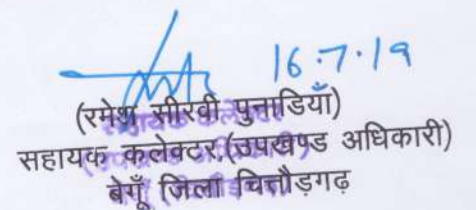 16.7.19
(रमेश सीरवी पुनाडियाँ)
सहायक कलेक्टर,(उपखण्ड अधिकारी)
बेगूँ जिला चित्तौड़गढ़